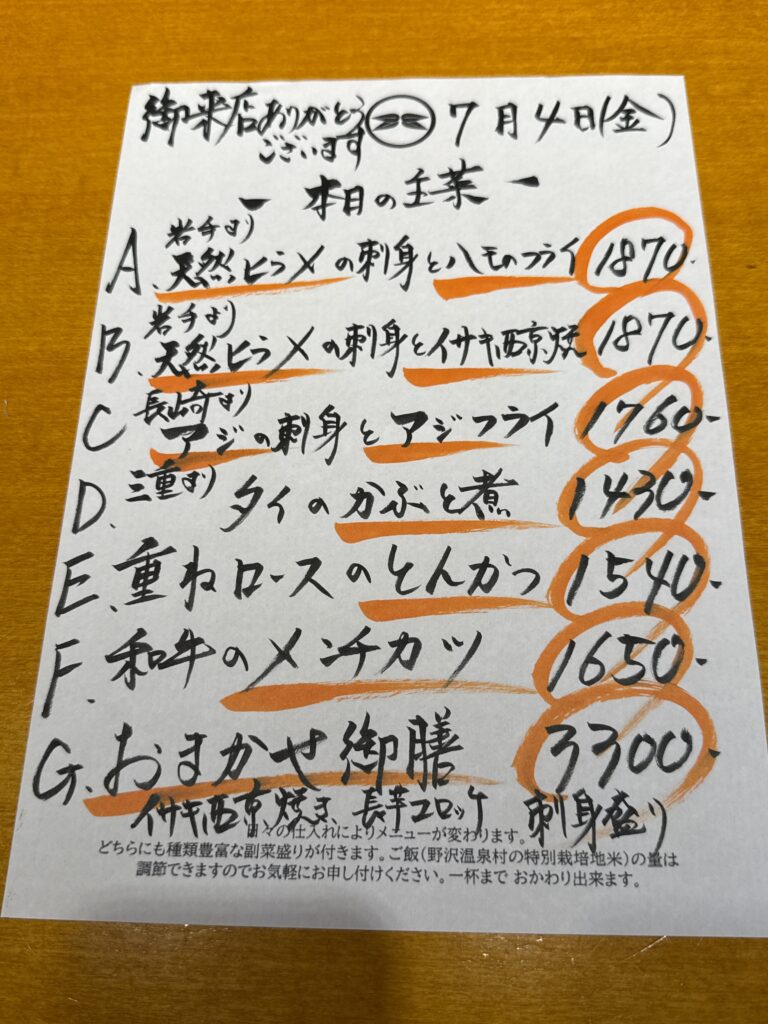 御来店ありがとうございます 7月4日(金)
- 本日の主菜 -
A. 岩手より 天然ヒラメの刺身とハモのフライ 1870-
B. 岩手より 天然ヒラメの刺身とイサキ西京焼 1870-
C 長崎より アジの刺身とアジフライ 1760-
D. 三重より タイのかぶと煮 1430-
E. 重ねロースのとんかつ 1540-
F. 和牛のメンチカツ 1650-
G. おまかせ御膳 3300-
イサキ西京焼き、長芋コロッケ 刺身盛り
日々の仕入れによりメニューが変わります。
どちらにも種類豊富な副菜盛りが付きます。ご飯(野沢温泉村の特別栽培地米)の量は
調節できますのでお気軽にお申し付けください。一杯まで おかわり出来ます。